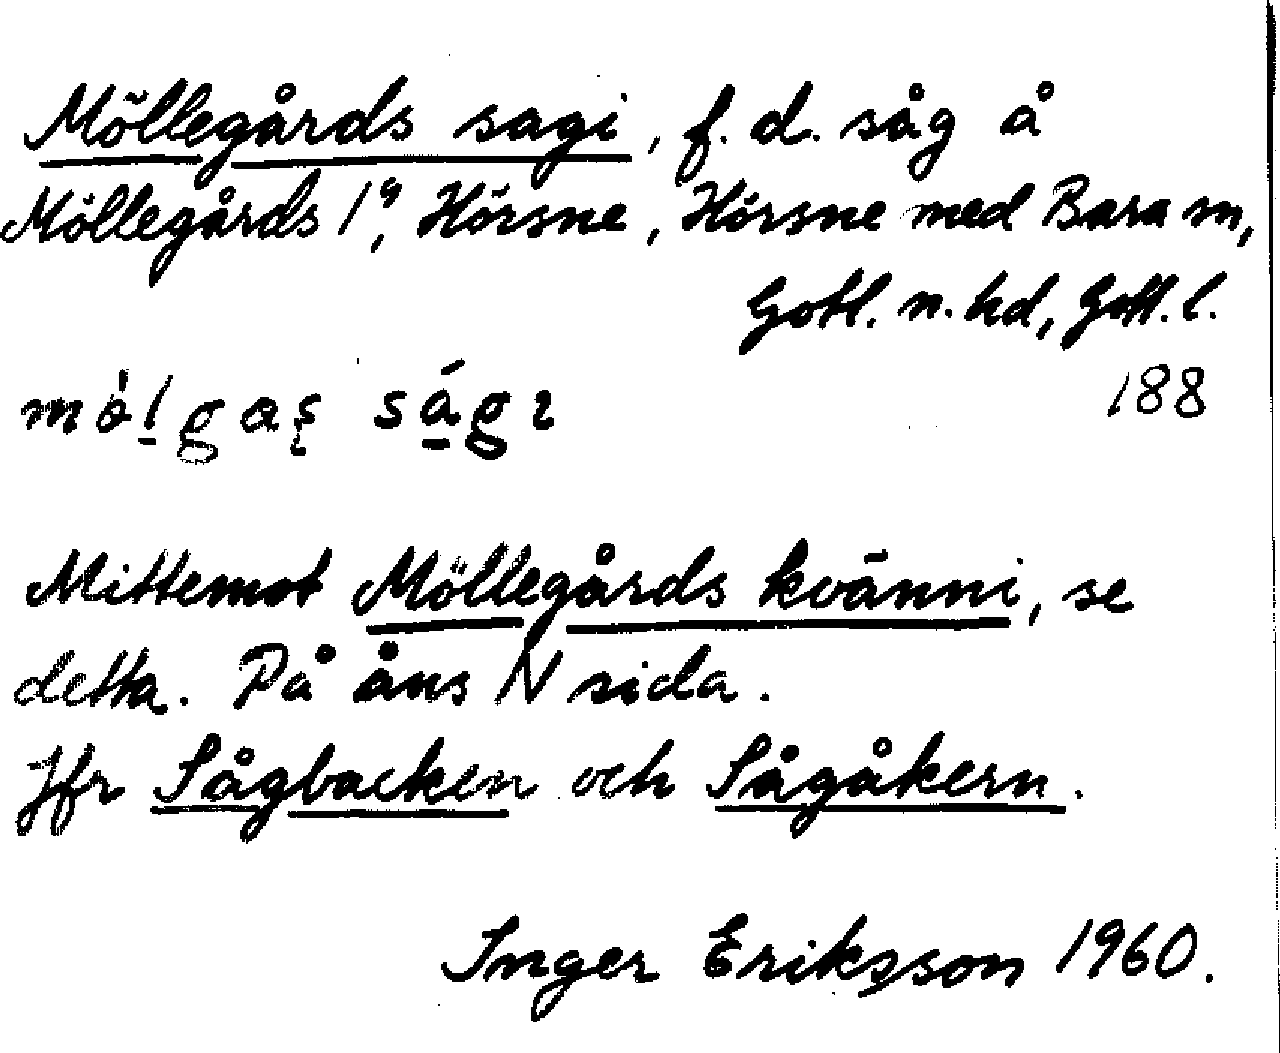 Möllegårds sagi, f. d. såg å
Möllegårds 1⁹, Hörsne, Hörsne med Bara sn,
Gotl. n. hd, Gotl. l.
188
Mittemot Möllegårds kvänni, se
detta. På åns N sida.
Jfr Sågbacken och Sågåkern.
Inger Eriksson 1960.